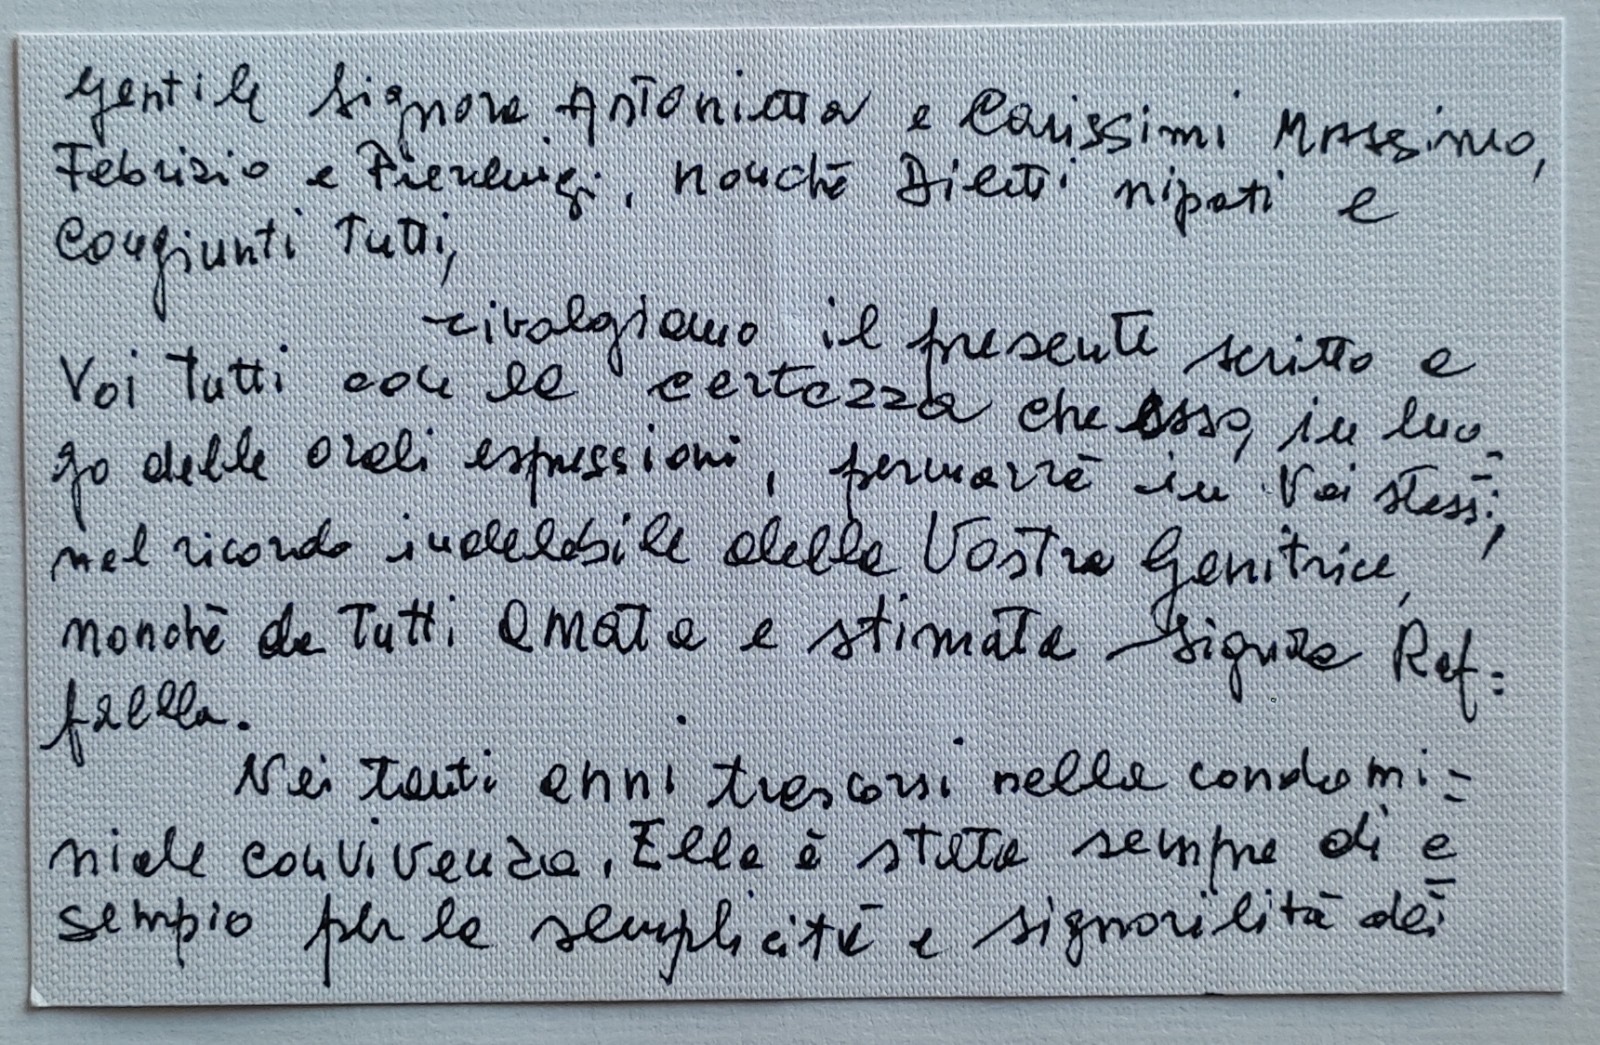 Gentile Signora Antonietta e Carissimi Massimo,
Fabrizio e Pierluigi, nonchè Diletti nipoti e
Congiunti Tutti,
rivolgiamo il presente scritto a
Voi Tutti con la certezza che esso, in luo-
go delle orali espressioni, permarrà in Voi stessi,
nel ricordo indelebile della Vostra Genitrice,
nonchè da Tutti amata e stimata Signora Raf=
faella.
Nei tanti anni trascorsi nella condomi=
niale convivenza, Ella è stata sempre di e-
sempio per la semplicità e signorilità dei